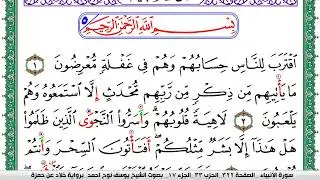 بِسْمِ اللَّهِ الرَّحْمَٰنِ الرَّحِيمِ
اقْتَرَبَ لِلنَّاسِ حِسَابُهُمْ وَهُمْ فِي غَفْلَةٍ مُعْرِضُونَ ١
مَا يَأْتِيهِمْ مِن ذِكْرٍ مِن رَّبِّهِم مُّحْدَثٍ إِلَّا اسْتَمَعُوهُ وَهُمْ
يَلْعَبُونَ ٢ لَاهِيَةً قُلُوبُهُمْ وَأَسَرُّوا النَّجْوَى الَّذِينَ ظَلَمُوا
هَلْ هَٰذَا إِلَّا بَشَرٌ مِّثْلُكُمْ أَفَتَأْتُونَ السِّحْرَ وَأَنتُمْ
سورة الأنبياء الصفحة ٣٢٢ الحزب ٣٣ الجزء ١٧ بصوت الشيخ يوسف نوح أحمد برواية خلاد عن حمزة